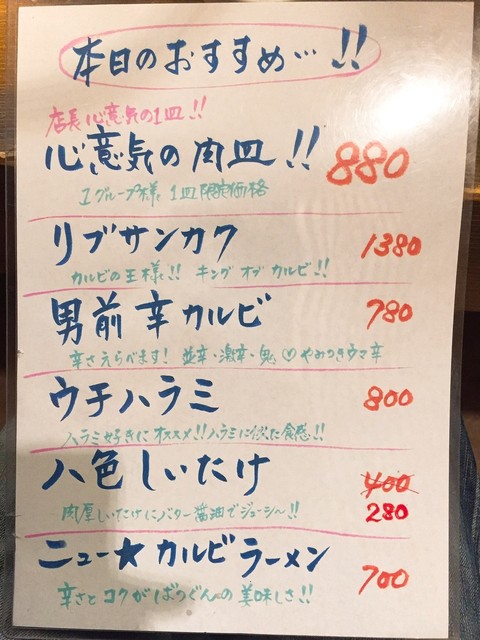 本日のおすすめ…!!
店長心意気の1皿!!
心意気の肉皿!! 880
1グループ様 1皿限定価格
リブサンカク 1380
カルビの王様!! キングオブカルビ!!
男前辛カルビ 780
辛さえらべます! 並辛・激辛・鬼 ♡やみつきウマ辛
ウチハラミ 800
ハラミ好きにオススメ!!ハラミに似た食感!!
八色しいたけ 400
肉厚しいたけにバター醤油でジューシ〜!! 280
ニュー★カルビラーメン 700
辛さとコクがばつぐんの美味しさ!!